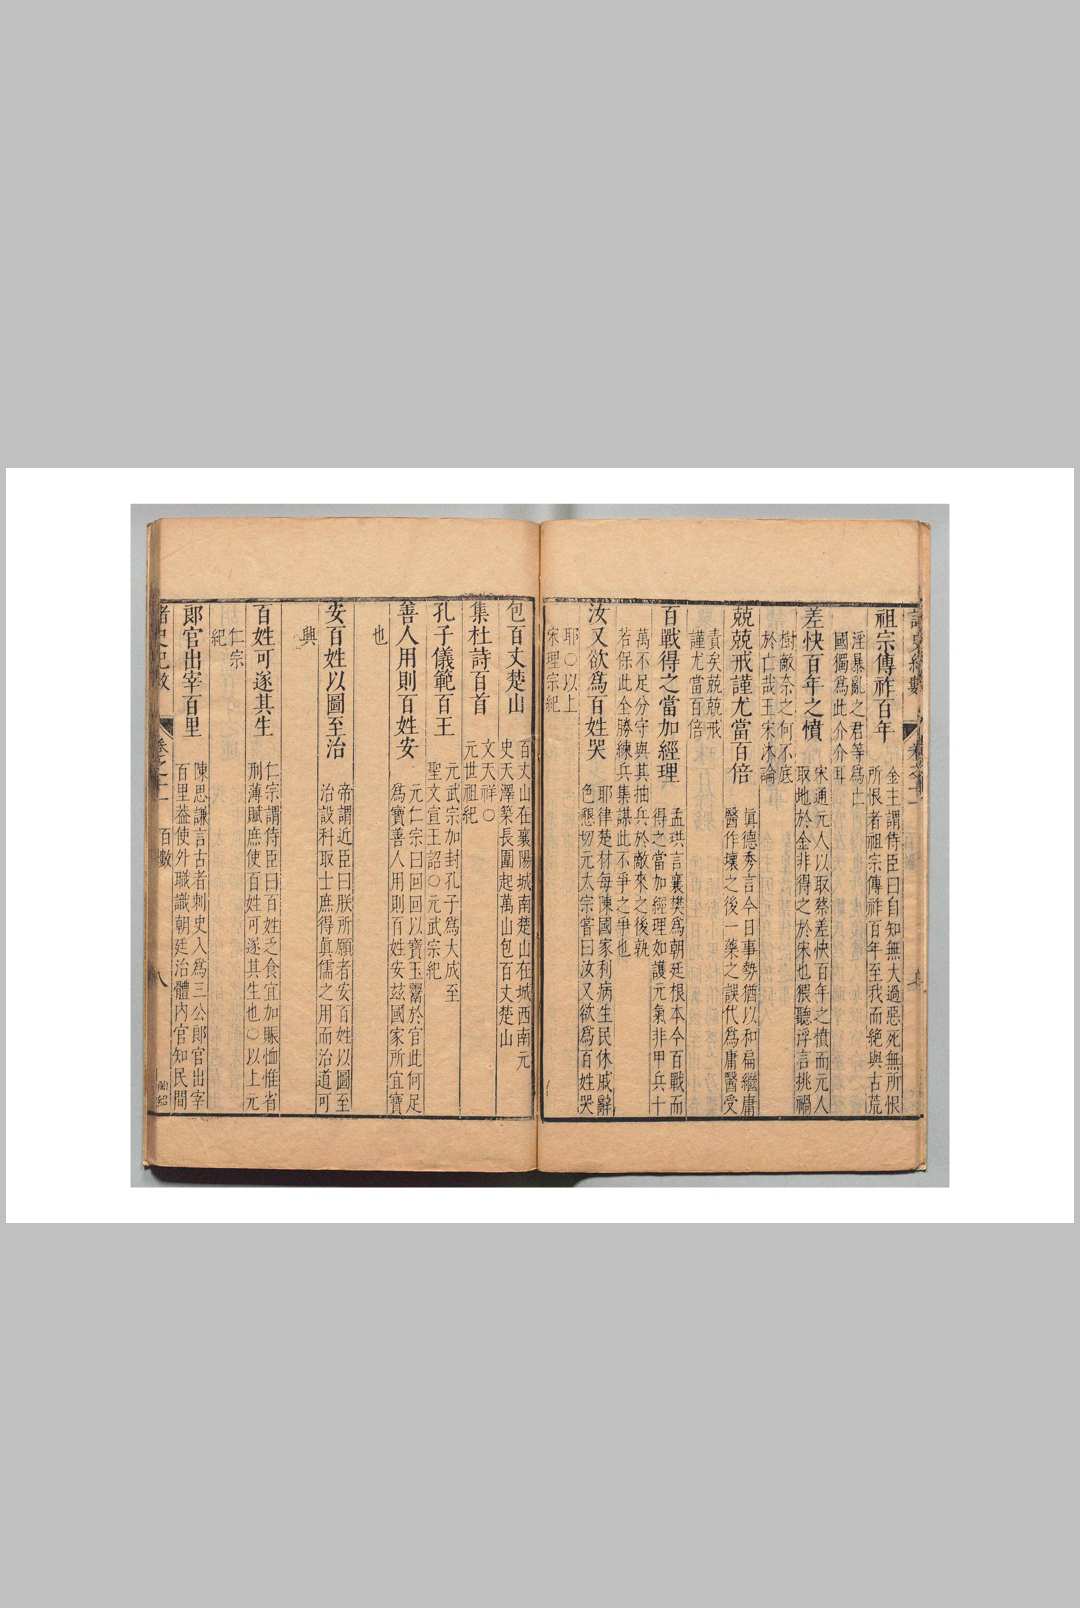 祖宗傳祚百年
金主謂侍臣曰自知無大過惡死無所恨
所恨者祖宗傳祚百年至我而絕與古荒
淫暴亂之君等為亡
國獨為此介介耳
差快百年之憤
宋通元人以取蔡差快百年之憤而元人
取地於金非得之於宋也猥聽浮言挑禍
樹敵奈之何不底
於亡哉王宋沐論
兢兢戒謹尤當百倍
眞德秀言今日事勢猶以和扁繼庸
醫作壞之後一藥之誤代為庸醫受
責矣兢兢戒
謹尤當百倍
百戰得之當加經理
孟珙言襄樊為朝廷根本今百戰而
得之當加經理如護元氣非甲兵十
萬不足分守與其抽兵於敵來之後孰
若保此全勝練兵集謀此不爭之爭也
汝又欲為百姓哭
耶律楚材每陳國家利病生民休戚辭
色懇切元太宗嘗曰汝又欲為百姓哭
耶○以上
宋理宗紀
包百丈楚山
百丈山在襄陽城南楚山在城西南元
史天澤築長圍起萬山包百丈楚山
集杜詩百首
文天祥○
元世祖紀
孔子儀範百王
元武宗加封孔子為大成至
聖文宣王詔○元武宗紀
善人用則百姓安
元仁宗曰回回以寶玉鬻於官此何足
為寶善人用則百姓安茲國家所宜寶
也
安百姓以圖至治
帝謂近臣曰朕所願者安百姓以圖至
治設科取士庶得眞儒之用而治道可
興
百姓可遂其生
仁宗謂侍臣曰百姓乏食宜加賑恤惟省
刑薄賦庶使百姓可遂其生也○以上元
仁宗
紀
郞官出宰百里
陳思謙言古者刺史入為三公郞官出宰
百里葢使外職識朝廷治體內官知民間
諸史紀數
卷之二
百數
八